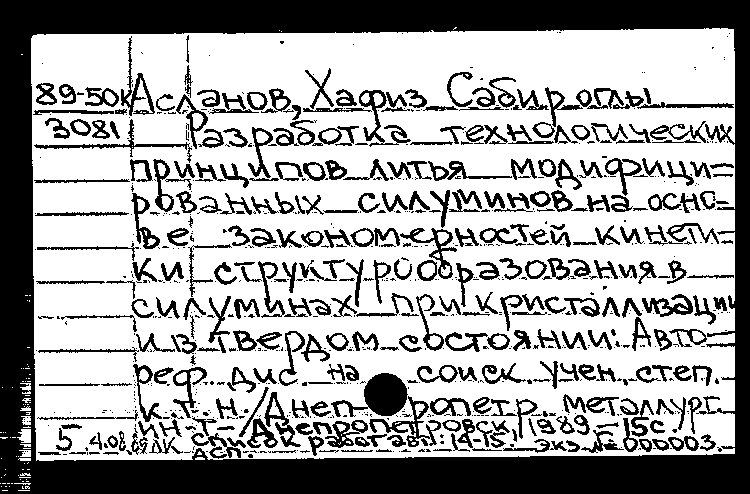 89-50к Асланов, Хафиз Сабир оглы.
3081 Разработка технологических
принципов литья модифици=
рованных силуминов на осно=
ве закономерностей кинети=
ки структурообразования в
силуминах при кристаллизации
и в твердом состоянии: Авто=
реф. дис. на соиск. учен. степ.
к.т.н. / Днепропетр. металлург.
ин-т.- Днепропетровск, 1989.-15с.
5 4.08.89 ЛК Список работ авт.: 14-15. экз № 000003.
АСП.